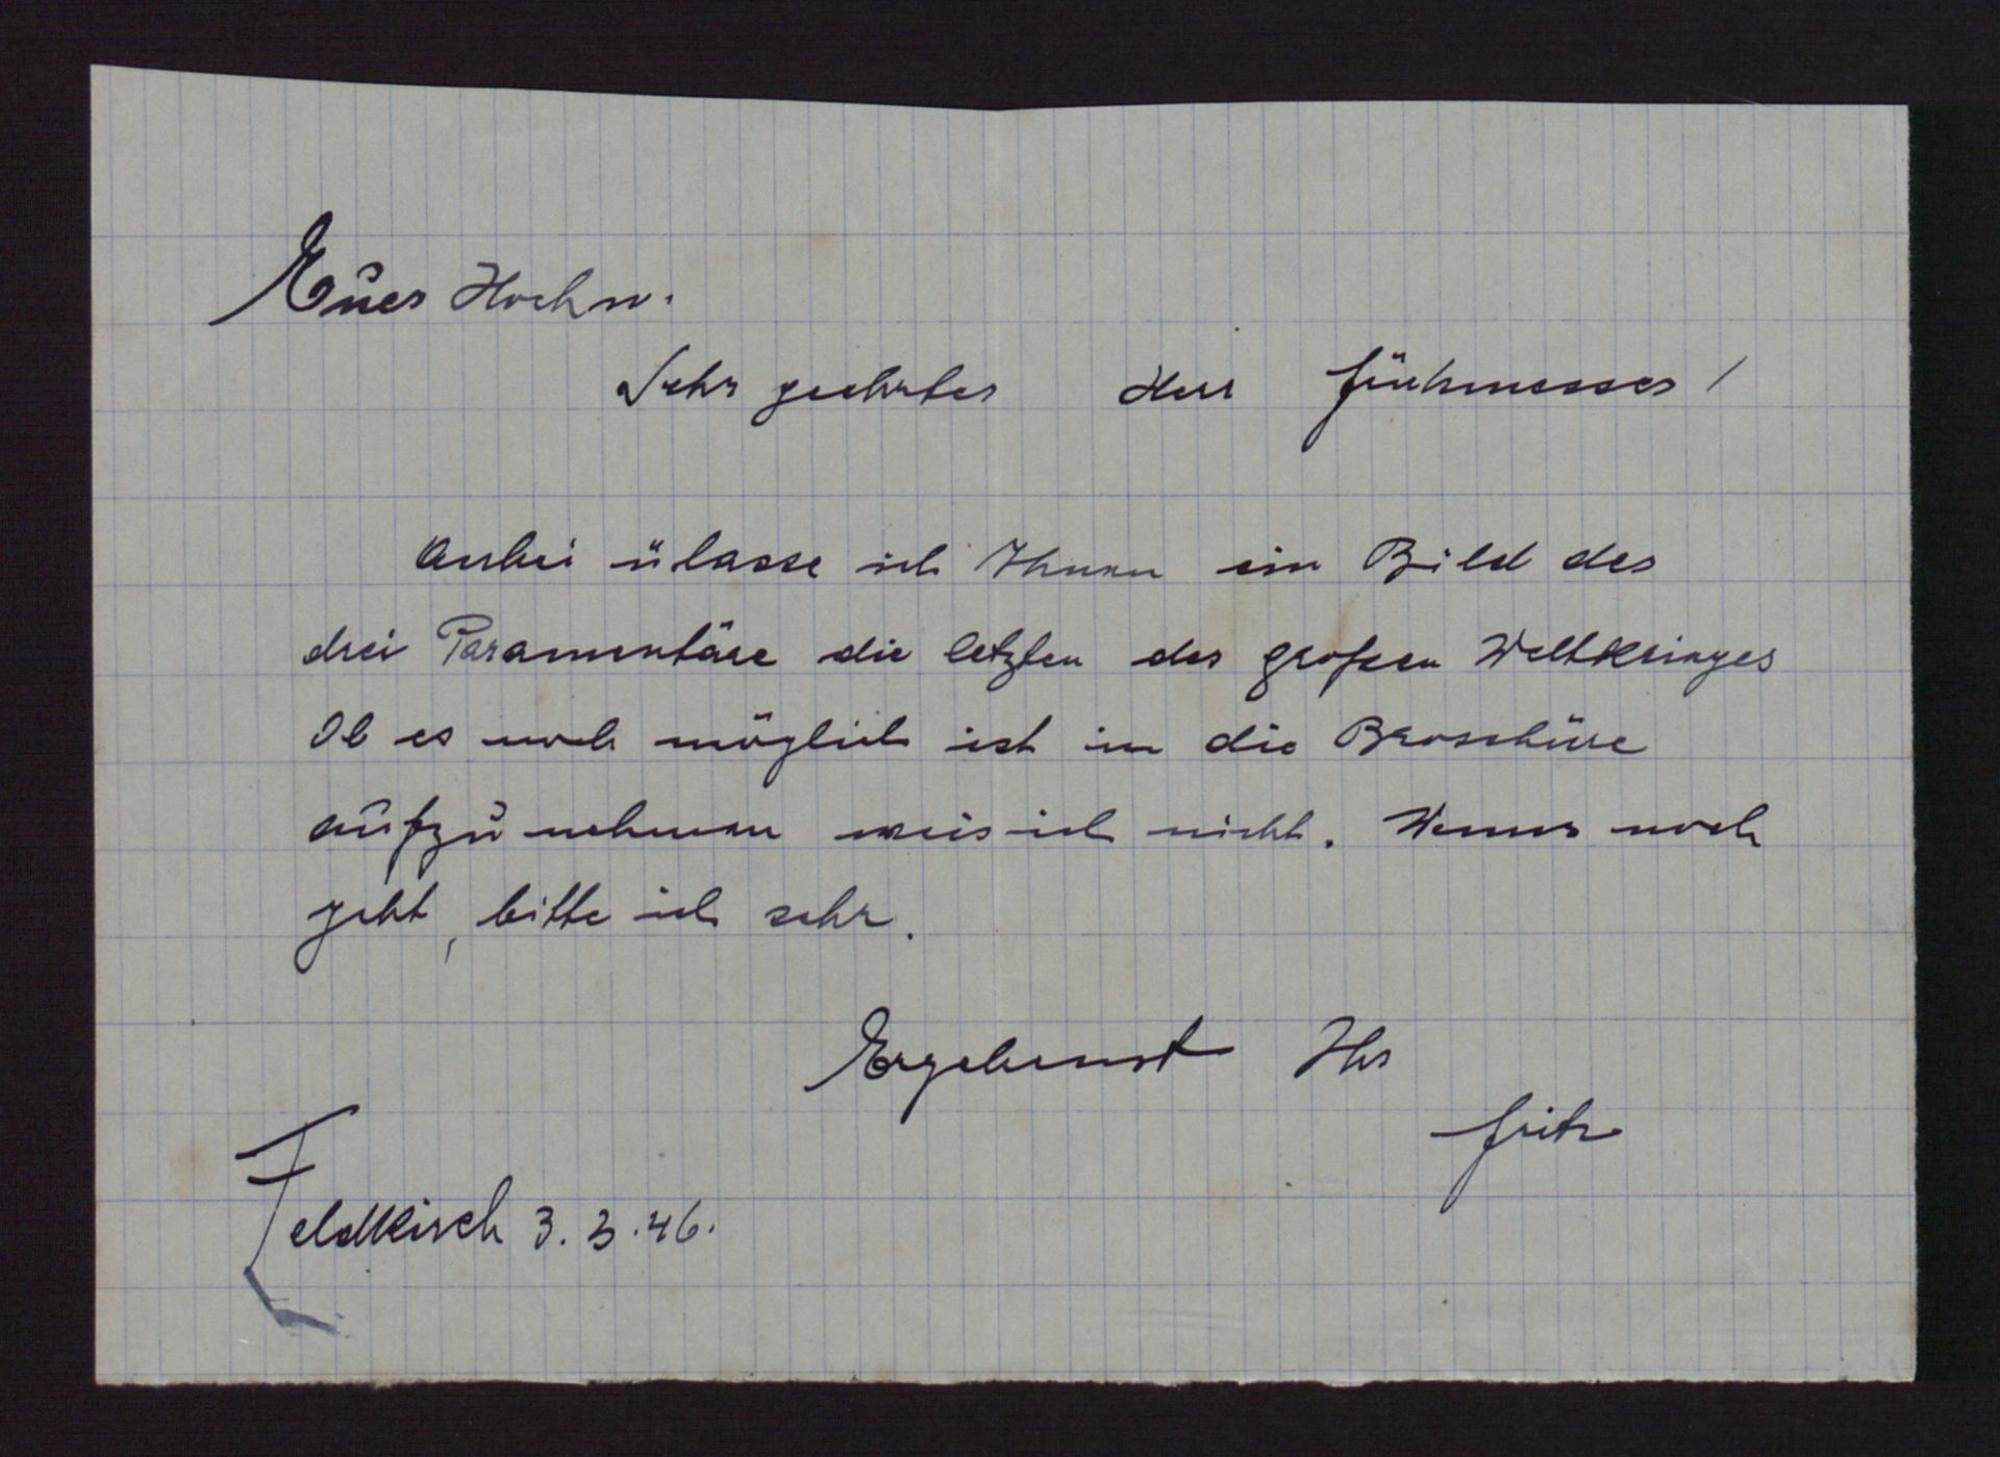 Euer Hochw.
Sehr geehrter Herr Frühmesser!
Anbei ülasse ich Ihnen ein Bild der
drei Paramentäre die letzten des großen Weltkrieges
Ob es noch möglich ist in die Broschüre
aufzunehmen weis ich nicht. Wenns noch
geht, bitte ich sehr.
Ergebenst Ihr
Fritz
Feldkirch 3.3.46.